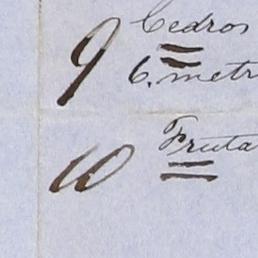 9 Cedros
6. metr
10 Fruta